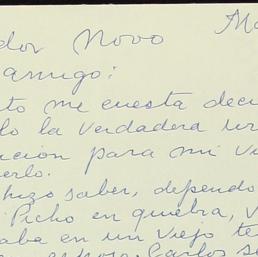 dor Novo
amigo:
to me cuesta deci
lo la verdadera ur
ución para mi vi
erlo.
hizo saber, dependo
Picho en quiebra, v
aba en un viejo te
esposo. Carlos se